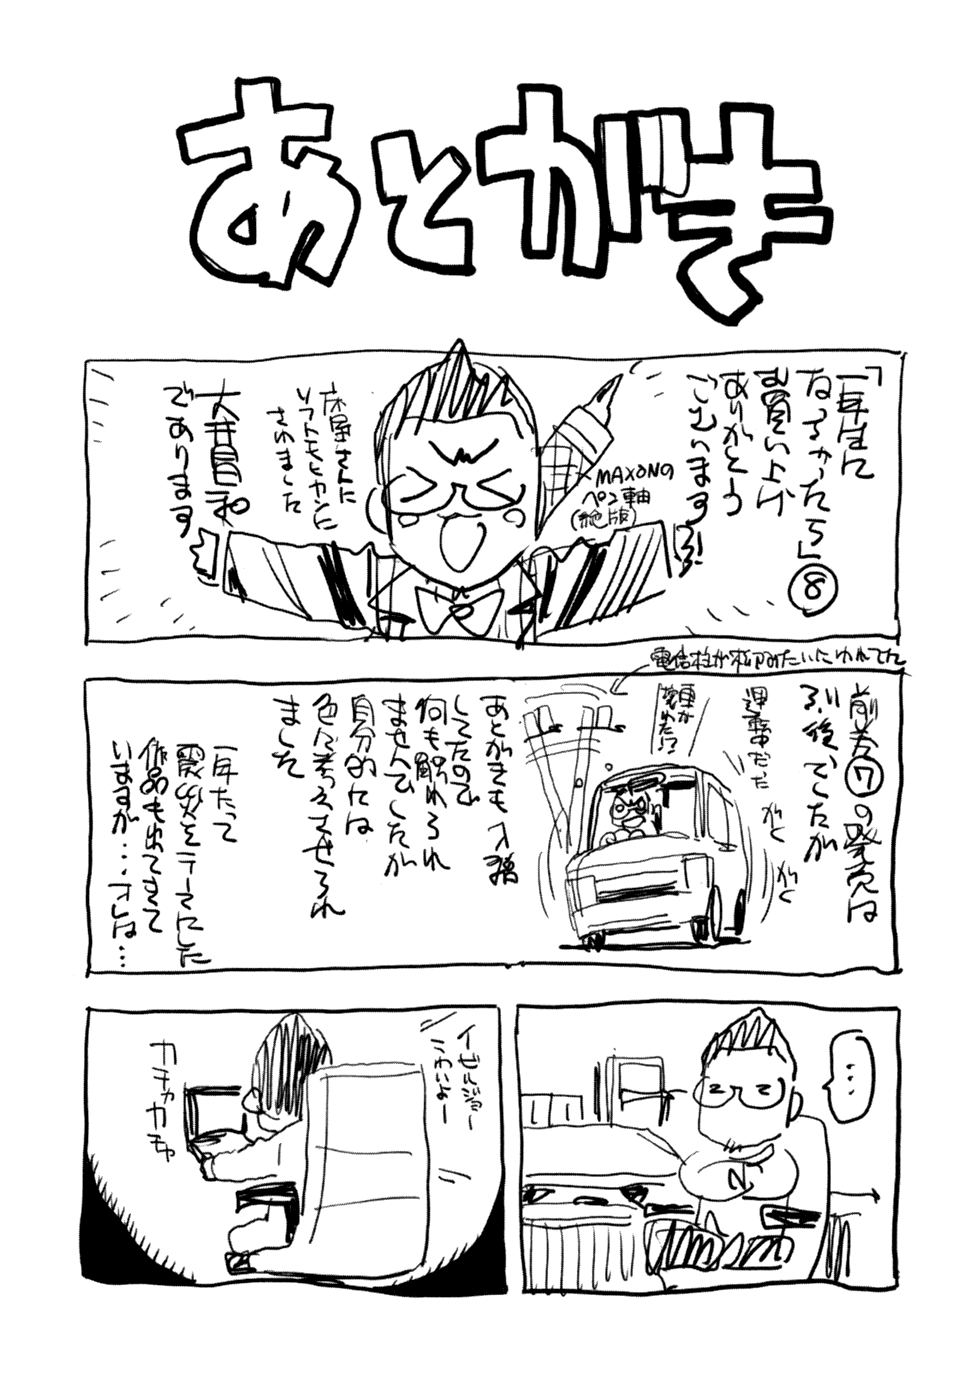 あとがき
「一年生に
なっちゃったら」⑧
お買い上げ
ありがとう
ございます
MAXONの
ペン軸
(絶版)
床屋さんに
ソフトモヒカンに
されました
大井昌和
であります
電信柱が松みたいにゆれてた
前巻⑦の発売は
3.11後でしたが
運転中だった
ガク
ガク
車が
壊れた!?
あとがきも入稿
してたので
何も触れられ
ませんでしたが
自分的には
色々考えさせられ
ました
一年たって
震災をテーマにした
作品も出てきて
いますが…オレは…
…
イゼルジョー
こわいよー
カチャカチャ